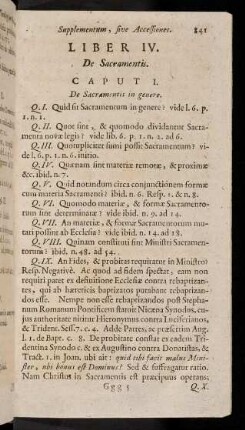 Supplementum, sive Accessiones. 841
LIBER IV.
De Sacramentis.
CAPUT I.
De Sacramentis in genere.
Q. I. Quid sit Sacramentum in genere? vide l. 6. p.
1. n. 1.
Q. II. Quot sint, & quomodo dividantur Sacra-
menta novæ legis? vide lib. 6. p. 1. n. 2. ad 6.
Q. III. Quotupliciter sumi possit Sacramentum? vi-
de l. 6. p. 1. n. 6. initio.
Q. IV. Quænam sint materiæ remotæ, & proximæ
&c. ibid. n. 7.
Q. V. Quid notandum circa conjunctionem formæ
cum materia Sacramenti? ibid. n. 6. Resp. 1. & n. 8.
Q. VI. Quomodo materiæ, & formæ Sacramento-
rum sint determinatæ? vide ibid. n. 9. ad 14.
Q. VII. An materiæ, & formæ Sacramentorum mu-
tari possint ab Ecclesia? vide ibid. n. 14. ad 18.
Q. VIII. Quinam constituti sint Ministri Sacramen-
torum? ibid. n. 48. ad 54.
Q. IX. An Fides, & probitas requiratur in Ministro?
Resp. Negativè. Ac quod ad fidem spectat, eam non
requiri patet ex definitione Ecclesiæ contra rebaptizan-
tes, qui ab hæreticis baptizatos putabant rebaptizan-
dos esse. Nempe non esse rebaptizandos post Stepha-
num Romanum Pontificem statuit Nicæna Synodus, cu-
jus authoritate nititur Hieronymus contra Luciferianos,
& Trident. Sess. 7. c. 4. Adde Patres, ac præsertim Aug.
l. 1. de Bapt. c. 8. De probitate constat ex eadem Tri-
dentina Synodo c. & ex Augustino contra Donatistas, &
Tract. 1. in Joan. ubi ait: quid tibi facit malus Mini-
ster, ubi bonus est Dominus? Sed & suffragatur ratio.
Nam Christus in Sacramentis est præcipuus operans;
Ggg 5 Q. X.